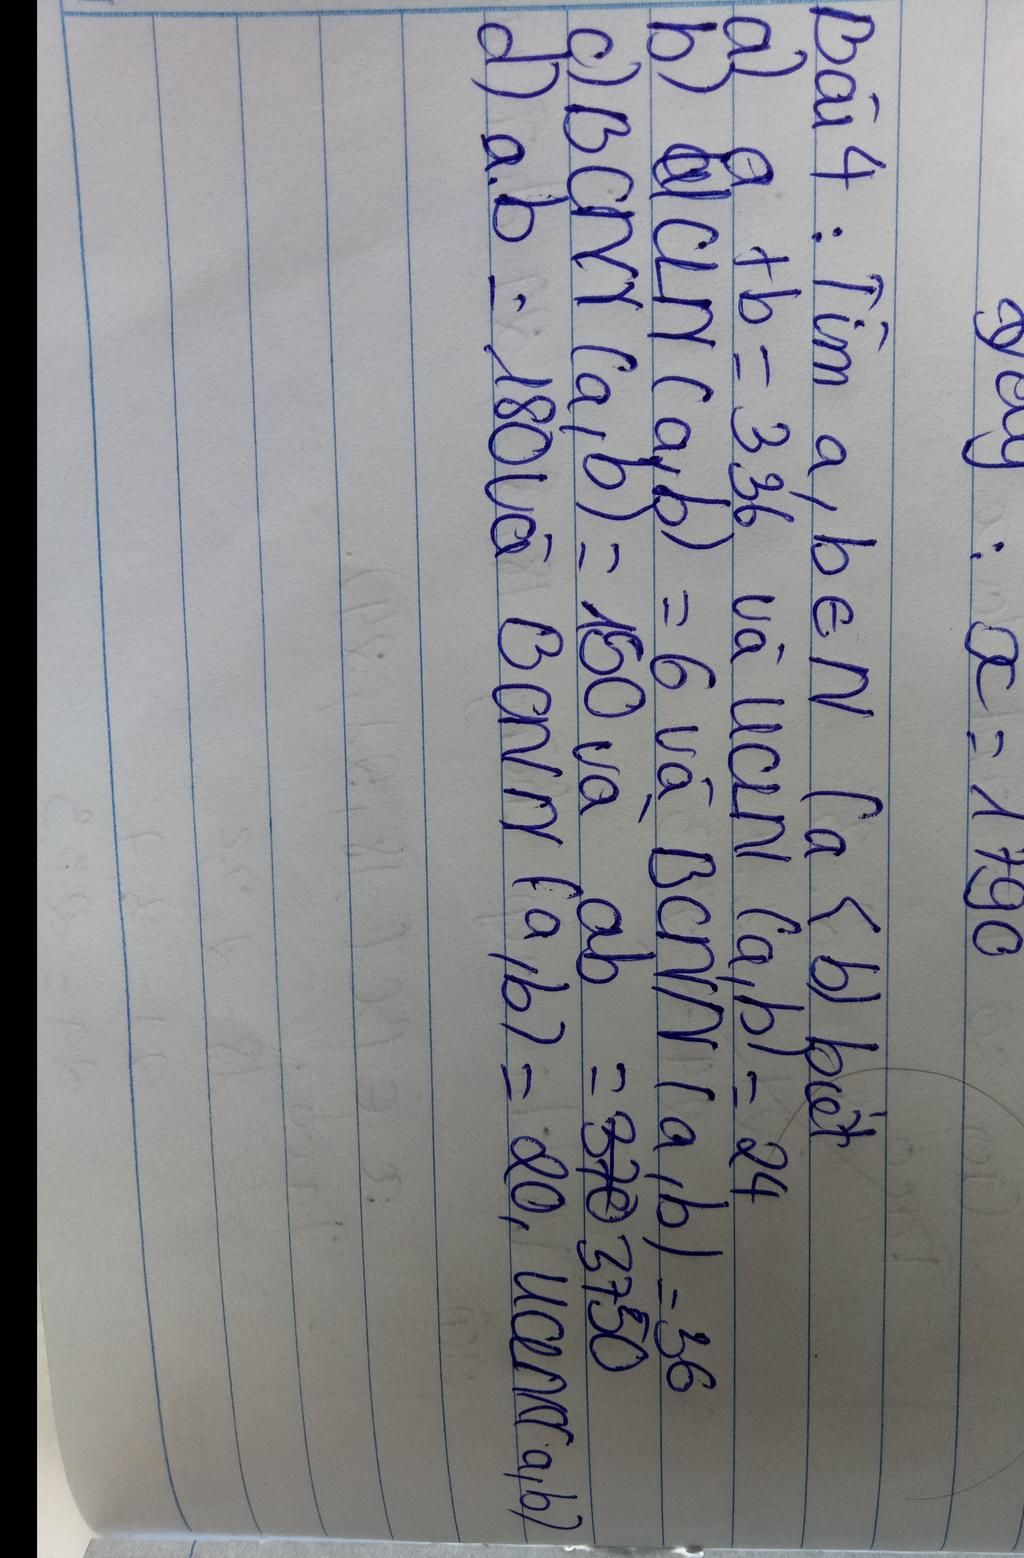 Vậy : x = 1790
Bài 4 : Tìm a, b ∈ N (a < b) biết
a) a + b = 336 và ƯCLN (a, b) = 24
b) ƯCLN (a, b) = 6 và BCNN (a, b) = 36
c) BCNN (a, b) = 150 và ab = 3750
d) a.b = 180 và BCNN (a, b) = 20, ƯCLN(a, b)